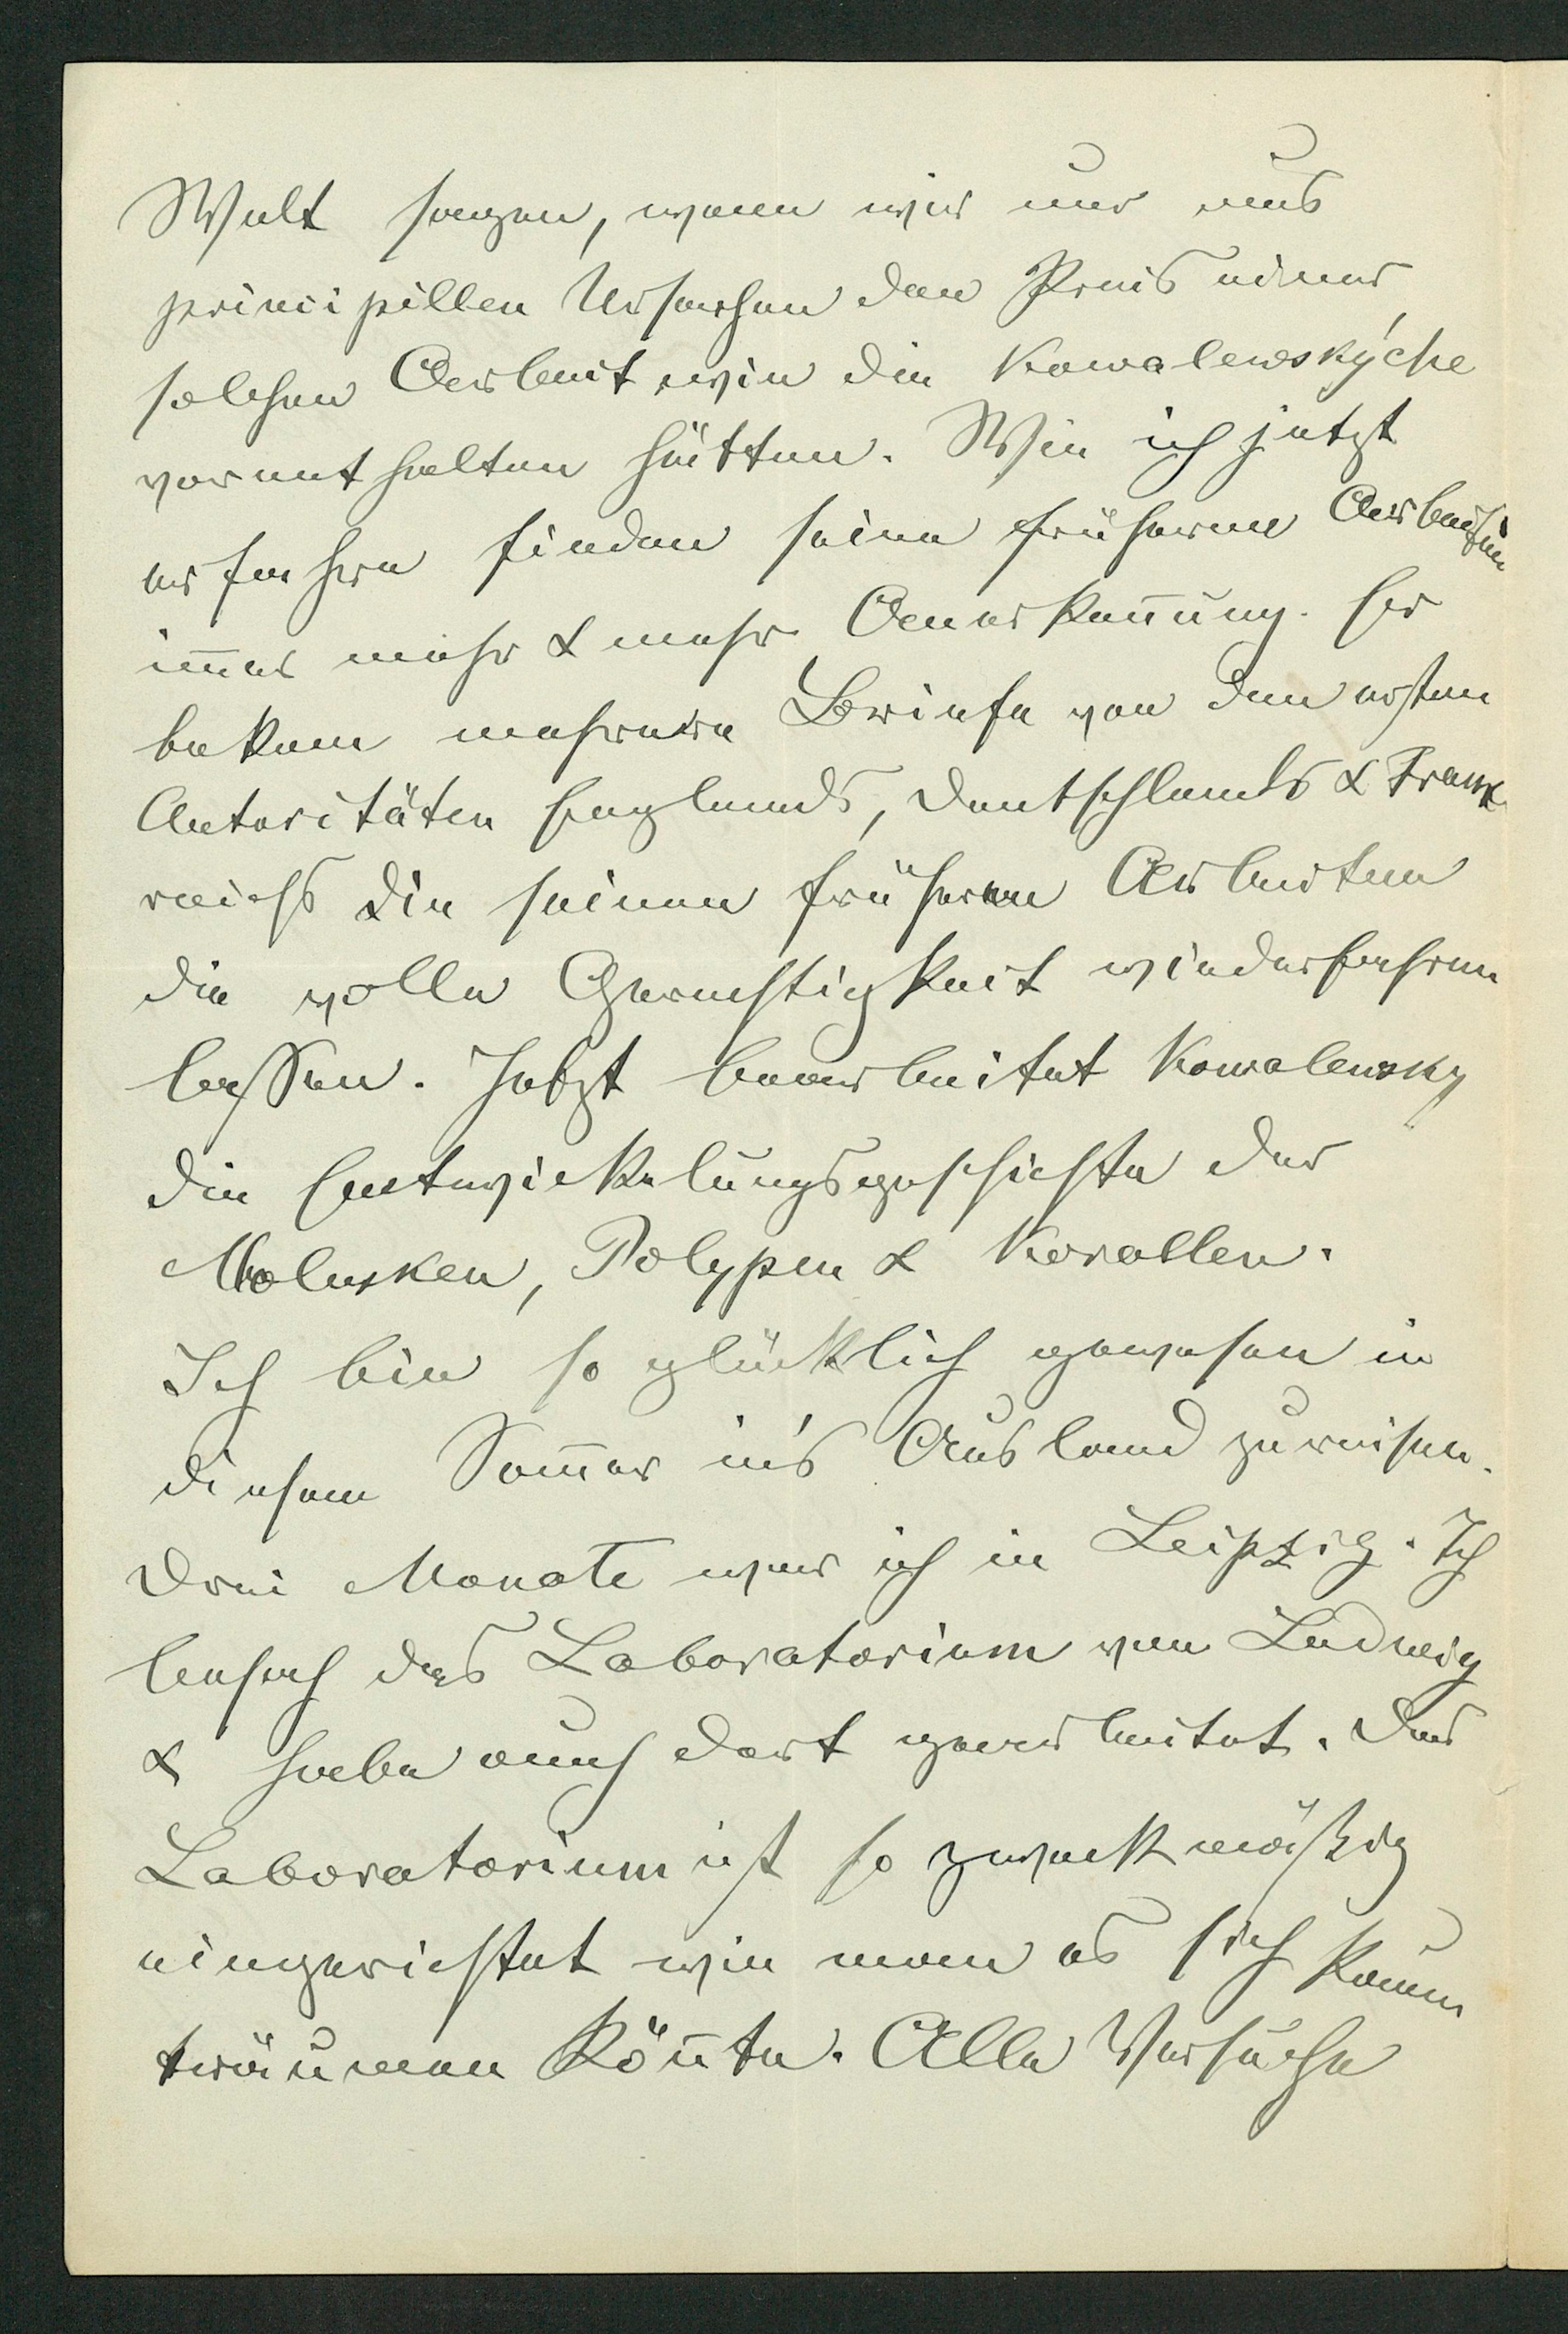 Welt sagen, wenn wir nur aus
principillen Ursachen den Preis einer
solchen Arbeit wie die Kowalewsky'che
vorenthalten hätten. Wie ich jetzt
erfahre finden seine früheren Arbeiten
im̅er mehr & mehr Anerkan̅ung. Er
bekam mehrere Briefe von den ersten
Autoritäten Englands, Deutschlands & Frank
reichs die seinen früheren Arbeiten
die volle Gerechtigkeit wiederfahren
lassen. Jetzt bearbeitet Kowalewsky
die Entwickelungsgeschichte der
Molusken, Polypen & Korallen.
Ich bin so glücklich gewesen in
diesem Som̅er in's Ausland zu reisen.
Drei Monate war ich in Leipzig. Ich
besah das Laboratorium von Ludwig
& habe auch dort gearbeitet. Das
Laboratorium ist so zweckmäßig
eingerichtet wie man es sich kaum
träumen kön̅te. Alle Versuche